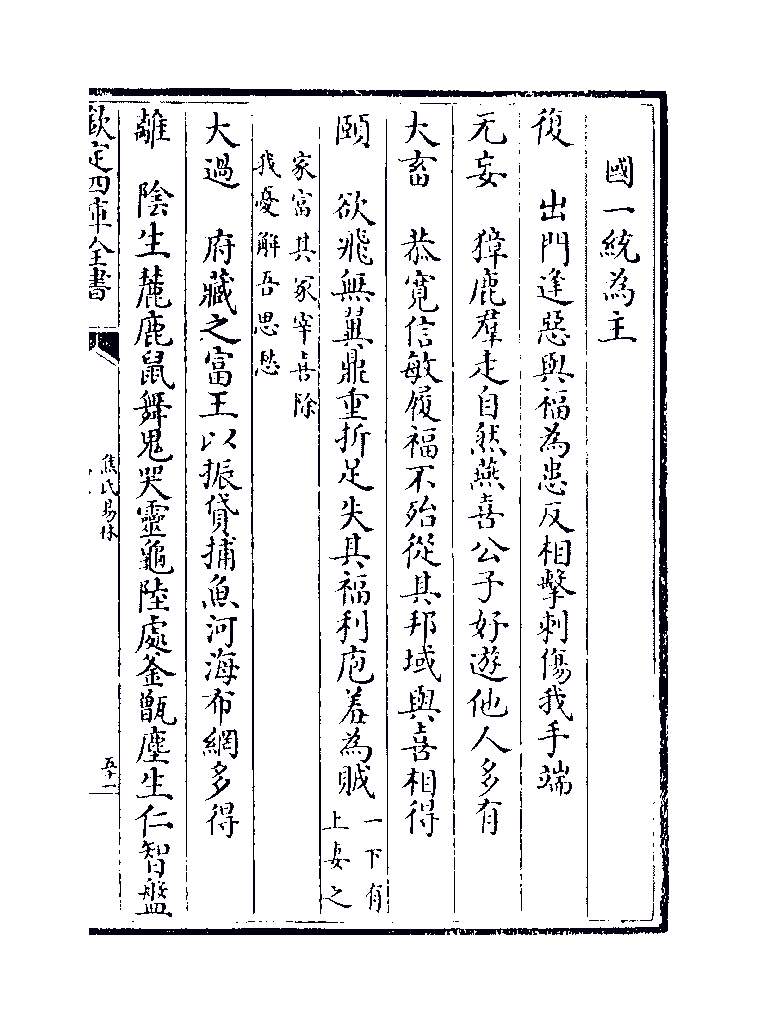 國一統為主
復　出門逢惡與福為患反相擊刺傷我手端
无妄　獐鹿羣走自然燕喜公子好遊他人多有
大畜　恭寛信敏履福不殆從其邦域與喜相得
頤　欲飛無翼鼎重折足失其福利庖羞為賊一下有上妻之
家富其冢宰喜除
我憂解吾思愁
大過　府藏之富王以振貸捕魚河海布網多得
離　陰生麓鹿鼠舞鬼哭靈龜陸處釜甑塵生仁智盤
欽定四庫全書
焦氏易林
五十一